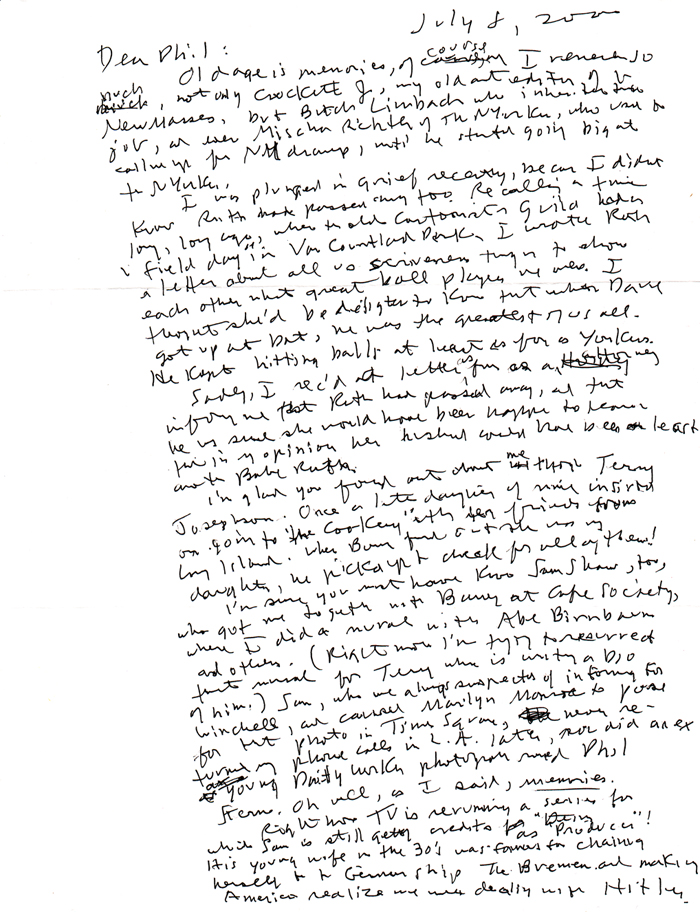 July 8, 200
Dear Phil:
Old age is memories, of course I remember so
much, not only Crockett J, my old art editor of the
New Masses, but Butch Limbach who inherited the
job, or even Mischa Richter of The NYorker, who used to
call me up for NM drawings, until he started going big at
the NYorker.
I was plunged in grief recently, because I didn't
know Ruth had passed away too. Recalling a time
long, long ago, when the old Cartoonists Guild had a
"field day" in Van Courtland Park, I wrote Ruth
a letter about all us scriveners trying to show
each other what great ball players we were. I
thought she'd be delighted to know that when Dave
got up at bat, he was the greatest of us all.
He kept hitting balls at least as far as Yonkers.
Sadly, I rec'd a letter from an attorney
informing me that Ruth had passed away, and that
he was sure she would have been happy to learn
that in my opinion her husband could have been at least
another Babe Ruth.
I'm glad you found out about me through Terry
Josephson. Once a late daughter of mine insisted
on going to "the Cookery" with her friends from
Long Island. When Barney found out she was my
daughter, he picked up the check for all of them!
I'm sure you must have known Sam Shaw, too,
who got me together with Barney at Cafe Society,
where I did a mural with Abe Birnbaum
and others. (Right now I'm trying to resurrect
that mural for Terry who is writing a bio
of him.) Sam, who we always suspected of informing for
Winchell, and caused Marilyn Monroe to pose
for that photo in Time Square, never re-
turned my phone calls in L.A. later, nor did an ex
young Daily Worker photographer named Phil
Stern. Oh well, as I said, memories.
Right now TV is rerunning a series for
which Sam is still getting credits as "Producer"!
His young wife in the 30's was famous for chaining
herself to the German ship The Bremen and making
America realize we were dealing with Hitler.